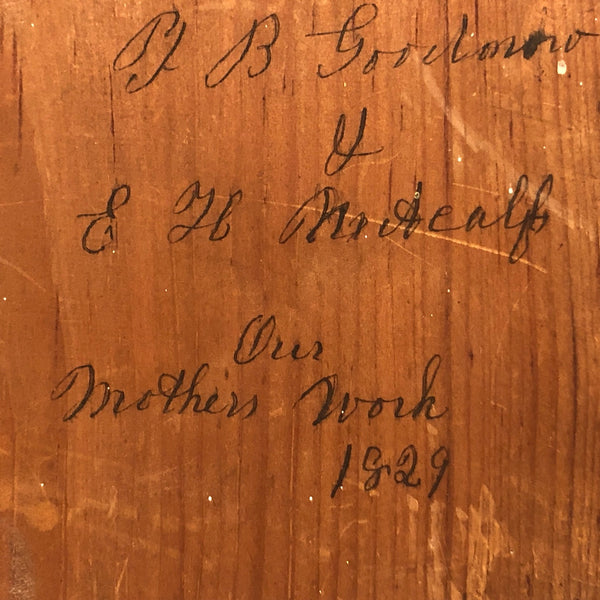 F B Goodnow
&
E H Metcalf
Our
Mothers Work
1829